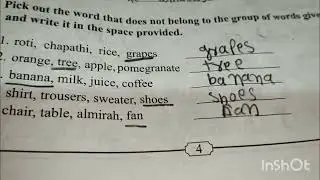 Pick out the word that does not belong to the group of words give
and write it in the space provided.
1. roti, chapathi, rice, grapes grapes
2. orange, tree, apple, pomegranate tree
banana, milk, juice, coffee banana
shirt, trousers, sweater, shoes shoes
chair, table, almirah, fan Fan
4
InShOt